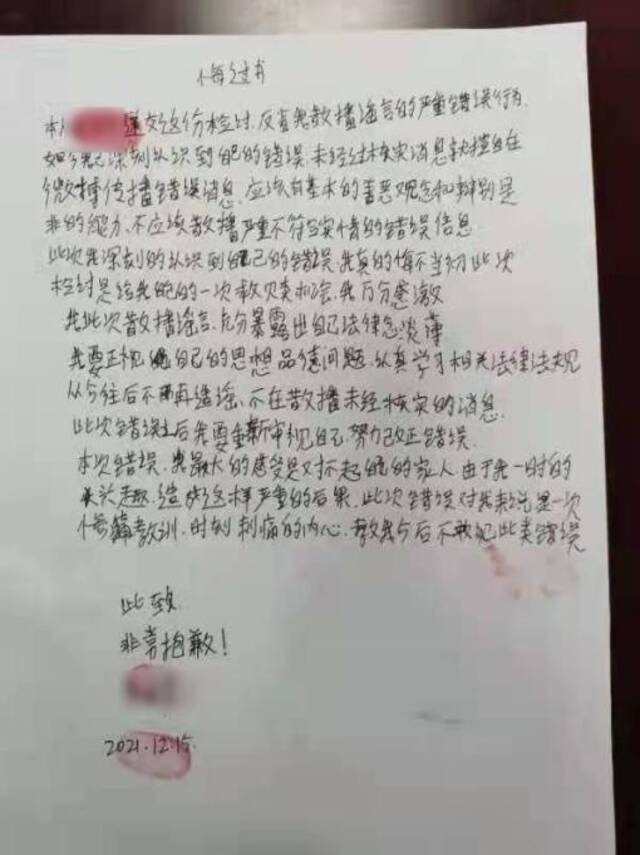 悔过书
本人 递交这份检讨,反省我散播谣言的严重错误行为.
如今我已深刻认识到自己的错误.未经过核实消息就擅自在
微 传播错误消息.应该有基本的善恶观念和辩别是
非的能力.不应该散播严重不符合实情的错误信息.
此次我深刻的认识到自己的错误.我真的悔不当初此次
检讨是给我自己的一次救赎机会,我万分感激
我此次散播谣言,充分暴露出自己法律意淡薄
我要正视 自己的思想品德问题,认真学习相关法律法规
从今往后不再造谣、不在散播未经核实的消息.
此次错误之后我要重新审视自己.努力改正错误.
本次错误.我最大的感受是对不起自己的家人由于我一时的
头 .造成这样严重的后果.此次错误对我来说是一次
惨痛教训.时刻刺痛我的内心.教我今后不敢犯此类错误
此致
非常抱歉!
2021.12.15.